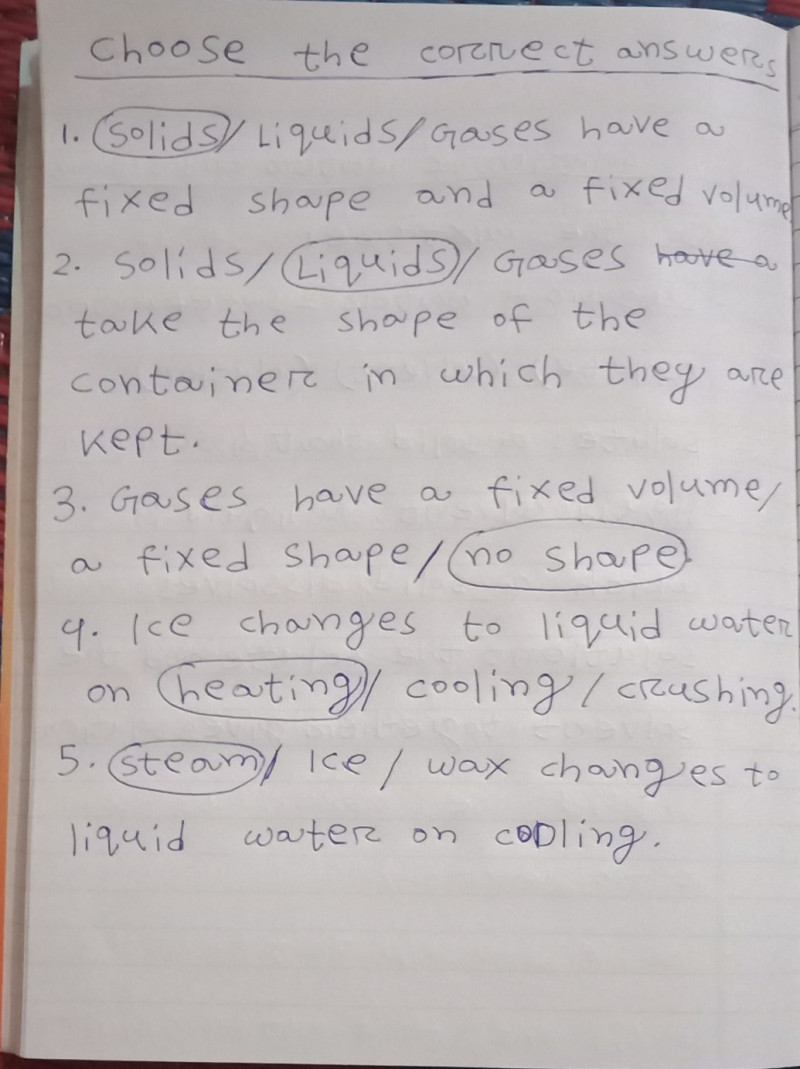 Choose the correct answers
1. Solids/Liquids/Gases have a
fixed shape and a fixed volume
2. Solids/Liquids/Gases have a
take the shape of the
container in which they are
kept.
3. Gases have a fixed volume/
a fixed shape/no shape.
4. Ice changes to liquid water
on heating/cooling/crushing.
5. steam/Ice/wax changes to
liquid water on cooling.